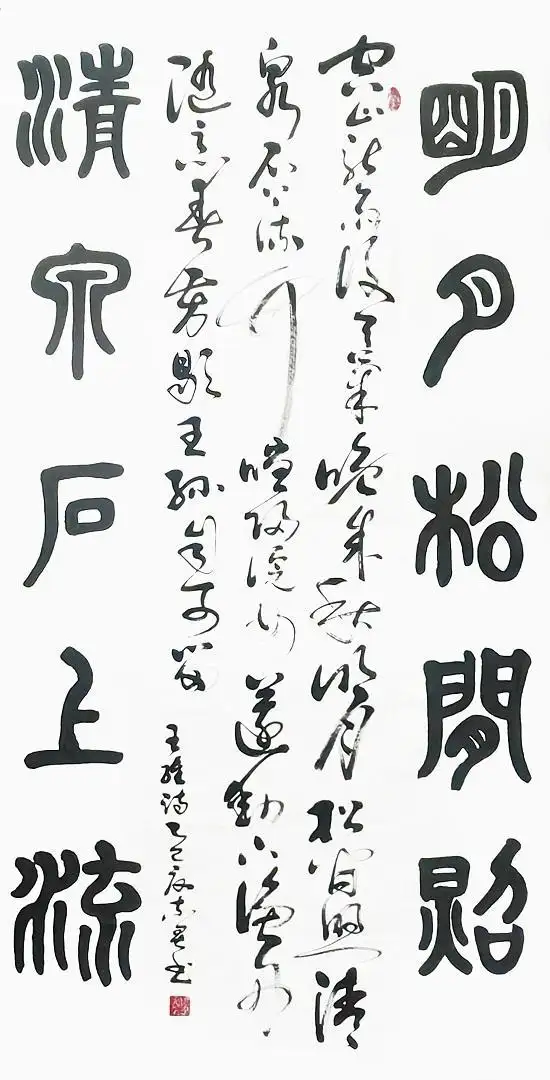 明月松間照
空山新雨後天氣晚來秋明月松間照清
泉石上流竹喧歸浣女蓮動下漁舟
隨意春芳歇王孫自可留
王維詩乙巳書
清泉石上流